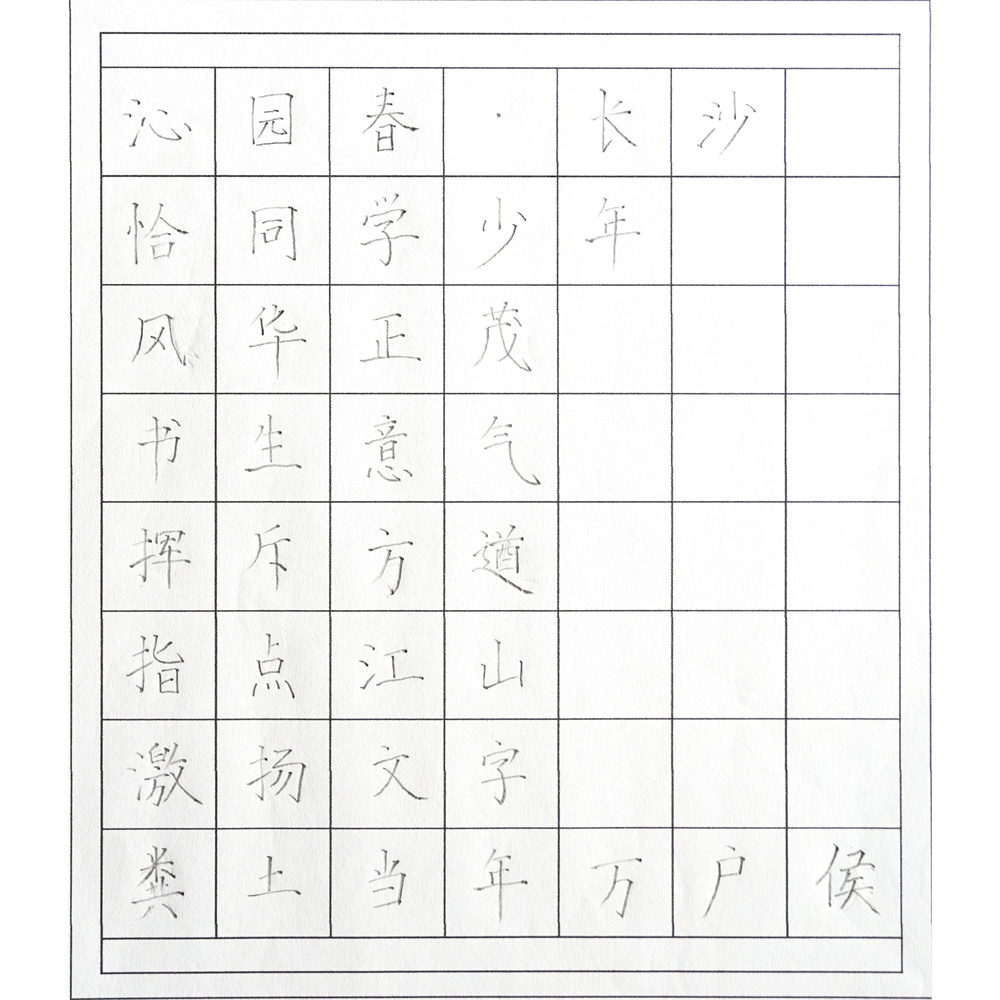 沁园春·长沙
恰同学少年
风华正茂
书生意气
挥斥方遒
指点江山
激扬文字
粪土当年万户侯